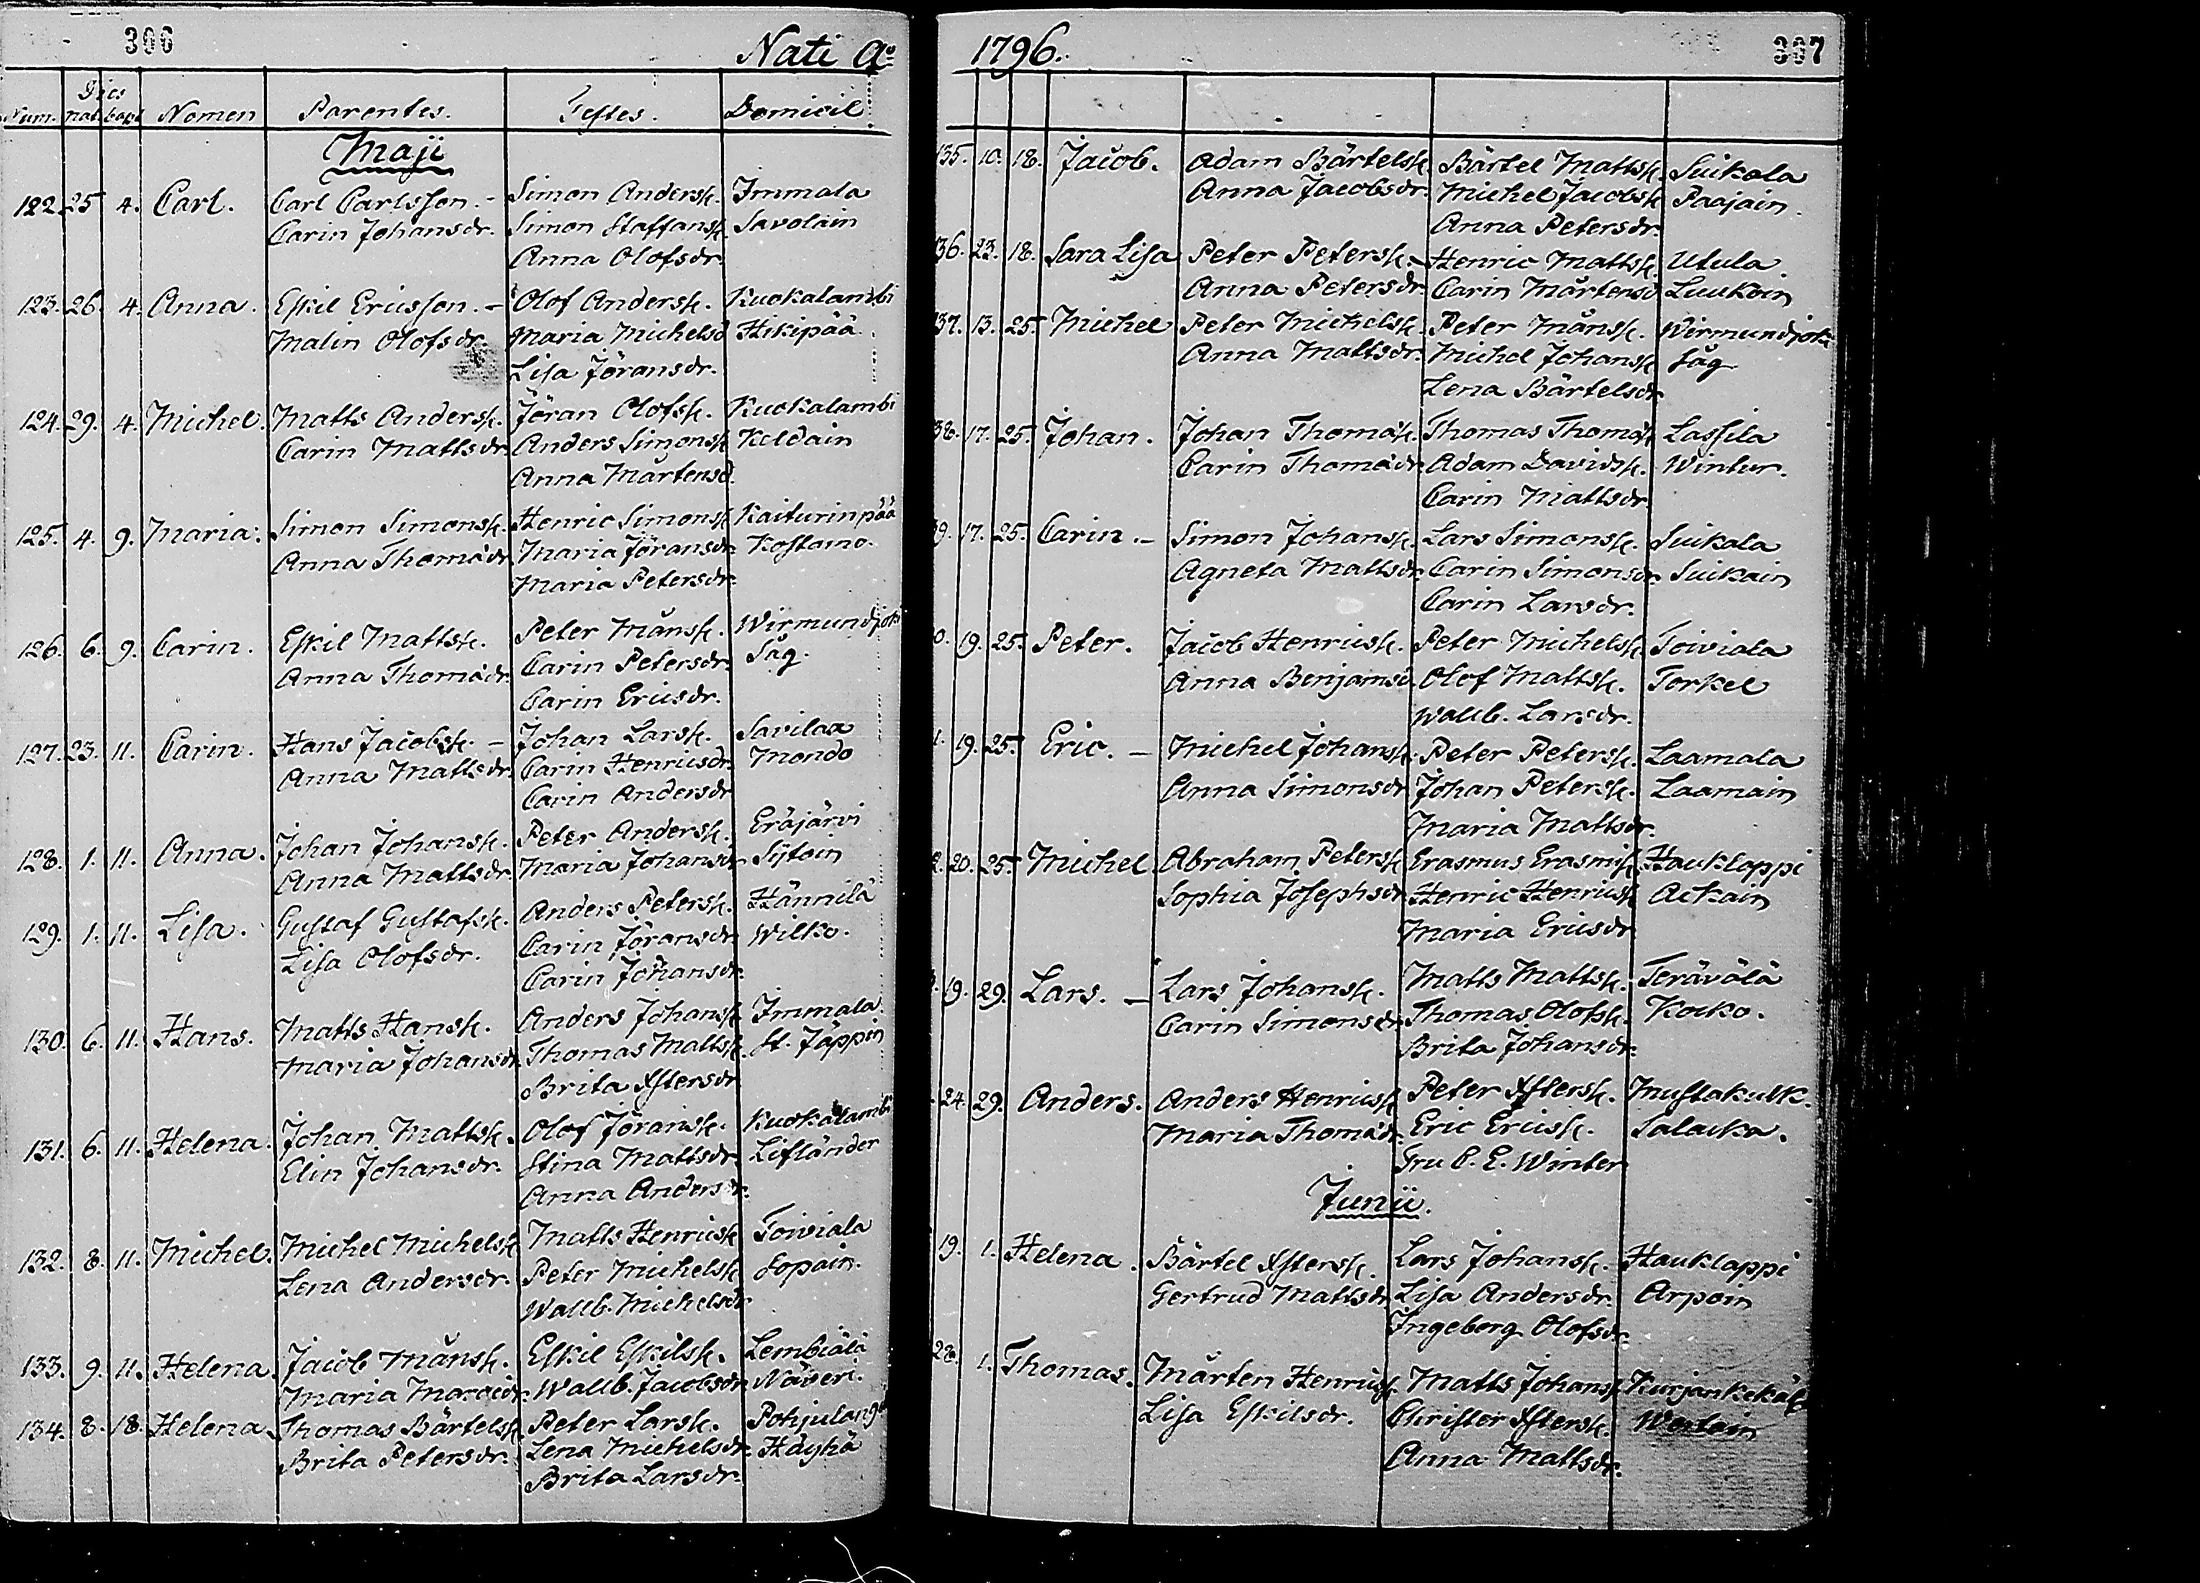 306
Nati Ao
Dies
Num. nat. bapt. Nomen Parentes. Testes. Domicil
Maji
122. 25 4. Carl. Carl Carlsson. - Simon Andersk. Immala
Carin Johansdr. Simon Staffansk. Savolain
Anna Olofsdr.
123. 26. 4. Anna. Eskil Ericsson. - Olof Andersk. Kuokalambi
Malin Olofsdr. Maria Michelsd Hikipää.
Lisa Jöransdr.
124. 29. 4. Michel. Matts Andersk. Jöran Olofsk. Kuokalambi
Carin Mattsdr. Anders Simonsk Keldain
Anna Mårtensd.
125. 4. 9. Maria. Simon Simonsk. Henric Simonsk Kaiturinpää
Anna Thomædr. Maria Jöransdr. Kostamo.
Maria Petersdr.
126. 6. 9. Carin. Eskil Mattsk. Peter Månsk. Wirmundjoki
Anna Thomædr. Carin Petersdr. Såg.
Carin Ericsdr.
127. 23. 11. Carin. Hans Jacobsk. - Johan Larsk. Savilax
Anna Mattsdr. Carin Henricsdr. Mondo
Carin Andersdr
128. 1. 11. Anna. Johan Johansk. Peter Andersk. Eräjärvi
Anna Mattsdr. Maria Johansdr Sytoin
129. 1. 11. Lisa. Gustaf Gustafsk. Anders Petersk. Hännilä
Lisa Olofsdr. Carin Jöransdr. Wilko.
Carin Johansdr.
130. 6. 11. Hans. Matts Hansk. Anders Johansk Immala.
Maria Johansdr. Thomas Mattsk. St. Jäppin
Brita Xstersdr
131. 6. 11. Helena. Johan Mattsk. Olof Jöransk. Kuokalambi
Elin Johansdr. Stina Mattsdr. Lifländer
Anna Andersdr.
132. 8. 11. Michel. Michel Michelsk Matts Henricsk Toiviala
Lena Andersdr. Peter Michelsk Sopain.
Wallb. Michelsdr.
133. 9. 11. Helena. Jacob Månsk. Eskil Eskilsk. Lembiälä
Maria Marcidr. Wallb. Jacobsdr Näveri.
134. 8. 18. Helena. Thomas Bärtelsk. Peter Larsk. Pohjulang
Brita Petersdr. Lena Michelsdr. Häyhä
Brita Larsdr.
1796.
307
135. 10. 18. Jacob. Adam Bärtelsk. Bärtel Mattsk. Suikala
Anna Jacobsdr. Michel Jacobsk Paajain.
Anna Petersdr.
136. 23. 18. Sara Lisa Peter Petersk. - Henric Mattsk. Utula.
Anna Petersdr. Carin Mårtensd Luukoin
137. 13. 25. Michel Peter Michelsk. Peter Månsk. Wirmundjoki
Anna Mattsdr. Michel Johansk Såg
Lena Bärtelsdr.
38. 17. 25. Johan. Johan Thomæsk. Thomas Thomæsk Lassila
Carin Thomædr. Adam Davidsk. Winter.
Carin Mattsdr.
39. 17. 25. Carin. - Simon Johansk. Lars Simonsk. Suikala
Agneta Mattsdr. Carin Simonsdr. Suikain
Carin Larsdr.
0. 19. 25. Peter. Jacob Henricsk. Peter Michelsk. Toiviala
Anna Benjamsd Olof Mattsk. Torkel
Wallb. Larsdr.
1. 19. 25. Eric. - Michel Johansk. Peter Petersk. Laamala
Anna Simonsdr Johan Petersk. Laamain
Maria Mattsdr.
2. 20. 25. Michel Abraham Petersk Erasmus Erasmisk Hauklappi
Sophia Josephsdr. Henric Henricsk Ackain
Maria Ericsdr
19. 29. Lars. - Lars Johansk. Matts Mattsk. Terävälä
Carin Simonsdr. Thomas Olofsk. Kocko.
Brita Johansdr.
24. 29. Anders. Anders Henricsk Peter Xstersk. Mustakulk.
Maria Thomædr. Eric Ericsk. Salacka.
Fru C. E. Winter
Junii.
19. 1. Helena. Bärtel Xstersk. Lars Johansk. Hauklappi
Gertrud Mattsdr. Lisa Andersdr. Arpoin
Ingeborg Olofsdr.
28. 1. Thomas. Mårten Henricsk. Matts Johansk.
Lisa Eskilsdr. Christer Xstersk.
Anna Mattsdr.